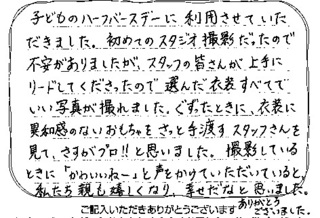 子どものハーフバースデーに利用させていた
だきました。初めてのスタジオ撮影だったので
不安がありましたが、スタッフの皆さんが上手に
リードしてくださったので選んだ衣装すべてで
いい写真が撮れました。ぐずったときに、衣装に
異和感のないおもちゃをさっと手渡すスタッフさんを
見て、さすがプロ!!と思いました。撮影している
ときに「かわいいねー」と声をかけていただいていると、
私たち親も嬉しくなり、幸せだなと思いました。
ありがとう
ございました。
ご記入いただきありがとうございます